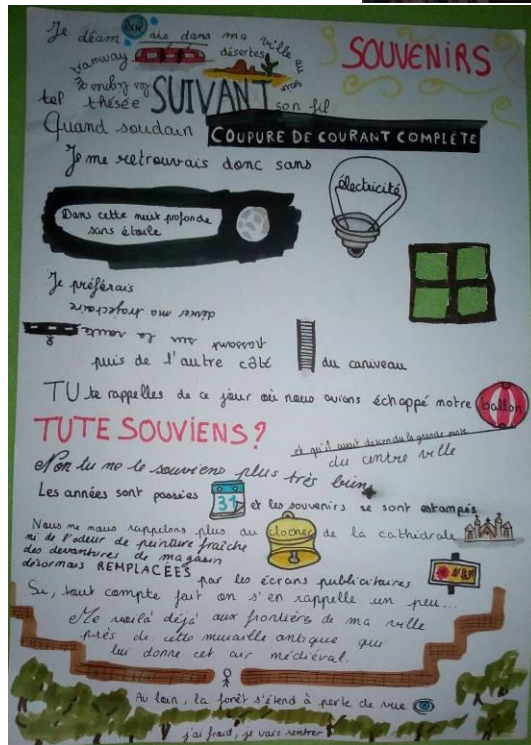 SOUVENIRS
Je déambulais dans ma ville au
tramway désertes
tel thésée SUIVANT son fil
Quand soudain COUPURE DE COURANT COMPLÈTE
Je me retrouvais donc sans
électricité
Dans cette nuit profonde
sans étoile
Je préférais
dévier ma trajectoire
passant sur la route
puis de l'autre côté du caniveau
TU te rappelles de ce jour où nous avions échappé notre ballon
TU TE SOUVIENS?
et qu'il avait descendu la grande pente
du centre ville
Non tu ne te souviens plus très bien
Les années sont passées 31 et les souvenirs se sont estompés
Nous ne nous rappelons plus du clocher de la cathédrale
ni de l'odeur de peinture fraîche
des devantures de magasin
désormais REMPLACÉES
par les écrans publicitaires
Si, tout compte fait on s'en rappelle un peu...
Me voilà déjà aux frontières de ma ville
près de cette muraille antique qui
lui donne cet air médiéval.
Au loin, la forêt s'étend à perte de vue
j'ai froid, je vais rentrer